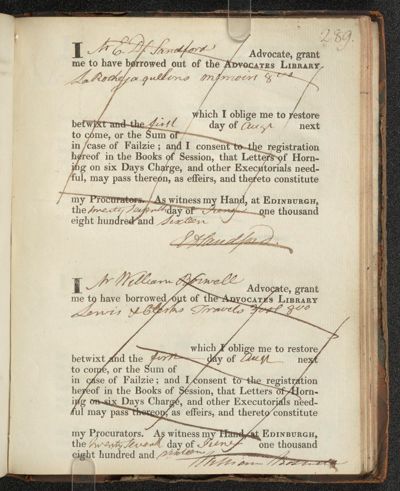 289.
I Mr E. D. Sandford Advocate, grant
me to have borrowed out of the ADVOCATES LIBRARY
LaRochejaquelins memoirs 8vo
which I oblige me to restore
betwixt and the first day of Augt next
to come, or the Sum of
in case of Failzie; and I consent to the registration
hereof in the Books of Session, that Letters of Horn-
ing on six Days Charge, and other Executorials need-
ful, may pass thereon, as effeirs, and thereto constitute
my Procurators. As witness my Hand, at EDINBURGH,
the twenty seventh day of June one thousand
eight hundred and sixteen
Sandford.
I Mr William Boswell Advocate, grant
me to have borrowed out of the ADVOCATES LIBRARY
Lewis & Clarks Travels 8vo
which I oblige me to restore
betwixt and the first day of Augt next
to come, or the Sum of
in case of Failzie; and I consent to the registration
hereof in the Books of Session, that Letters of Horn-
ing on six Days Charge, and other Executorials need-
ful may pass thereon, as effeirs, and thereto constitute
my Procurators. As witness my Hand, at EDINBURGH,
the twenty seventh day of June one thousand
eight hundred and sixteen
William Boswell